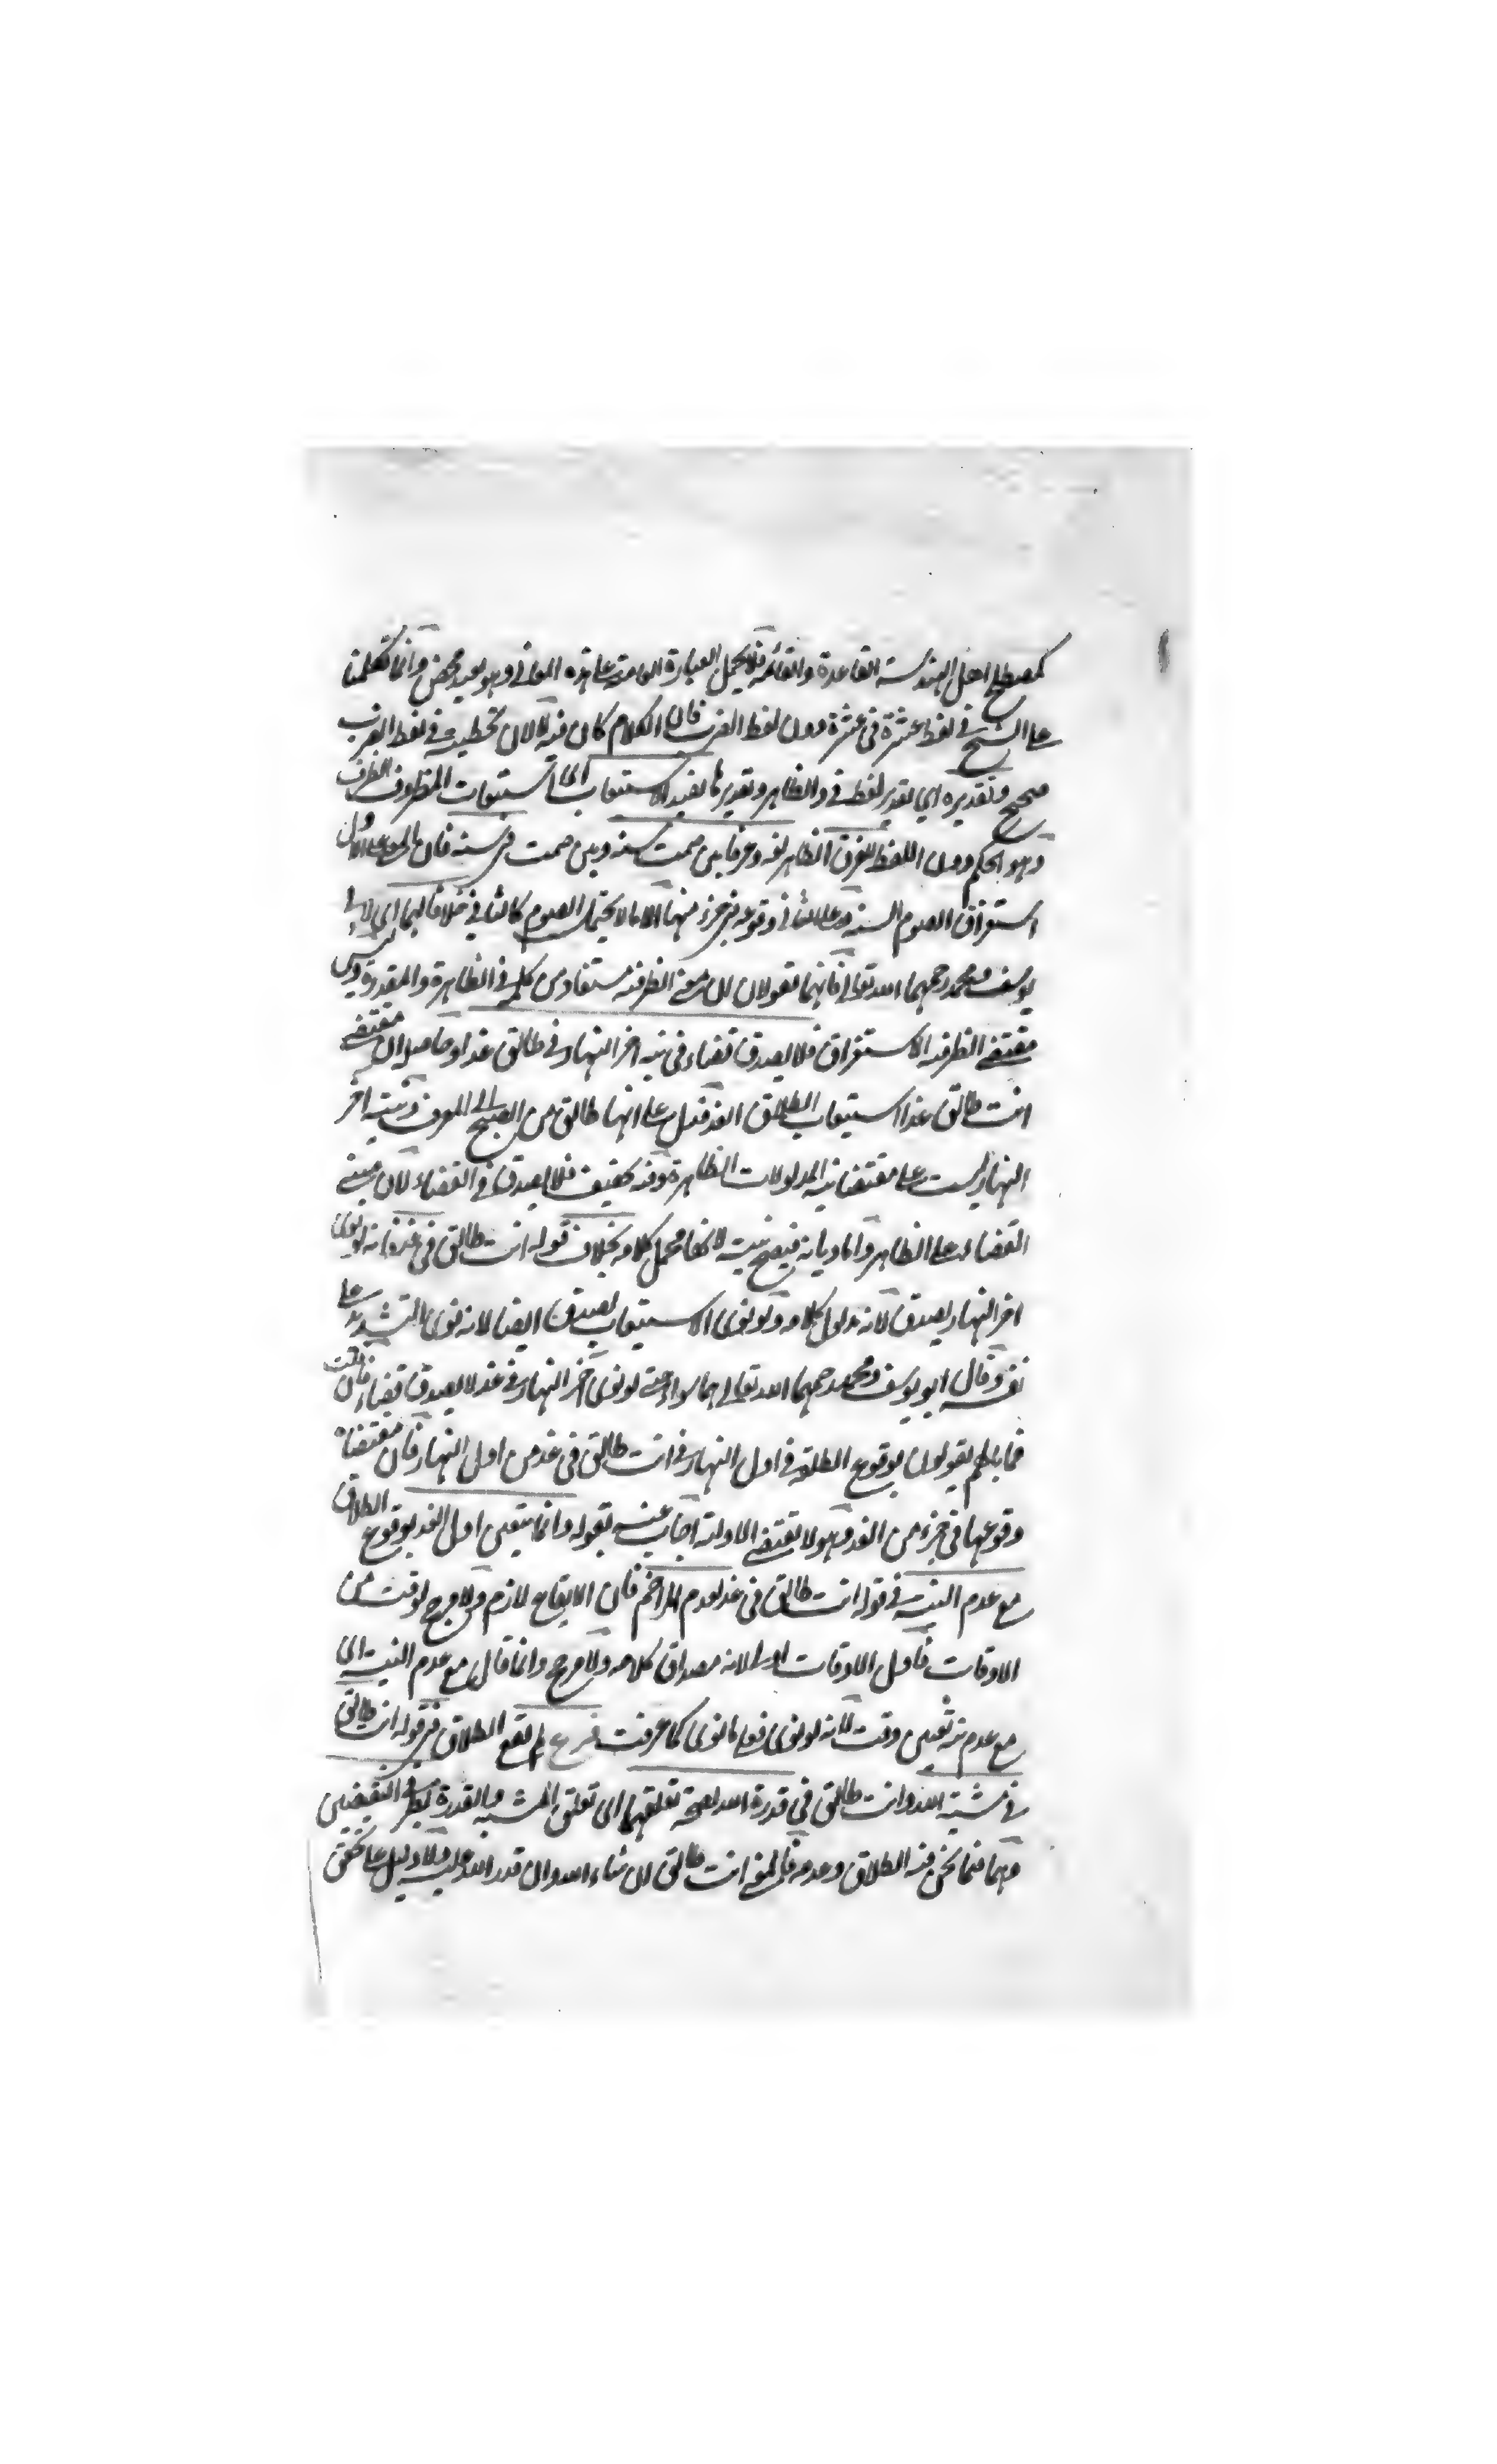 كمصطلح اهل الهندسة القاعدة والقائمة فلا يحمل العبارة العامة على هذه المعاني وهو بعيد محض وانما تكلمنا
على الشيخ في لفظ عشرة في عشرة دون لفظ الضرب فان الكلام كان فيه لان تخطية في لفظ الضرب
صحيح وتقديره اي تقدير لفظ في والظاهر وتقديرها يفيد الاستيعاب اي استيعاب المظروف الظرف
وهو الحكم دون اللفظ للفرق الظاهر لغة وعرفا بين صمت سنة وبين صمت في سنة فان المدلول على الاول
استغراق الصوم السنة وعلى الثاني وقوعه في جزء منها الا ما لا يحتمل الصوم كالثاني خلافا لهما اي لابي
يوسف ومحمد رحمهما الله تعالى فانهما يقولان ان معنى الظرفية مستفاد من كلمة في الظاهرة والمقدرة وليس
مقتضى الظرفية الاستغراق فلا يصدق قضاء في نية اخر النهار في طالق غدا وحاصله ان مقتضى
انت طالق غدا استيعاب الطلاق الغد فيدل على انها طالق من الصبح الى الغروب ونية اخر
النهار ليست على مقتضاتية المدلولات الظاهرة وفيه تخفيف فلا يصدق في القضاء لان مبنى
القضاء على الظاهر واما ديانة فيصح نيته لانها محمل كلامه بخلاف قوله انت طالق في غد فانه لو نوى
اخر النهار يصدق لانه مدلول كلامه ولو نوى الاستيعاب يصدق ايضا لانه نوى التشديد على
نفسه وقال ابو يوسف ومحمد رحمهما الله تعالى هما سواء حتى لو نوى آخر النهار في غد لا يصدق قضاء فان قلت
فما بالهم يقولون بوقوع الطلقة في اول النهار في انت طالق في غد من اول النهار فان مقتضاه
وقوعها في جزء من الغد وهو لا يقتضي الاولية اجاب عنه بقوله وانما يتعين اول الغد لوقوع الطلاق
مع عدم النية في قوله انت طالق في غد لعدم المزاحم فان الايقاع لازم ولا مرجح لوقت من
الاوقات فاول الاوقات اولى لانه مصداق كلامه ولا مرجح وانما قال مع عدم النية اي
مع عدم نية تعيين وقت لانه لو نوى فهو ما نوى كما عرفت فرع لم يقع الطلاق في قوله انت طالق
في مشية الله وانت طالق في قدرة الله لصحة تعلقهما اي تعلق المشية والقدرة بطرفي النقيضين
وهما فيما نحن فيه الطلاق وعدمه فالمعنى انت طالق ان شاء الله وان قدر الله عليه ولا دليل على تحقق